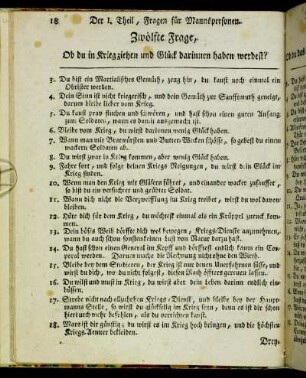 18 Der I. Theil, Fragen für Mannspersonen.
Zwölfte Frage,
Ob du in Krieg ziehen und Glück darinnen haben werdest?
3. Du bist ein Martialisches Gemüth, zeug hin, du kanst noch einmal ein
Officier werden.
4. Dein Sinn ist nicht kriegerisch, und dein Gemüth zur Sanftmuth geneigt,
darum bleibe lieber vom Krieg.
5. Du kanst brav fluchen und schwören, und hast schon einen guten Anfang
zum Soldaten, wann es damit ausgemacht ist.
6. Bleibe vom Krieg, du wirst darinnen wenig Glück haben.
7. Wann man mit Bratwürsten und Butter-Wecken schösse, so gebest du einen
wackern Soldaten ab.
8. Du wirst zwar in Krieg kommen, aber wenig Glück haben.
9. Fahre fort, und folge deinen Kriegs Neigungen, du wirst dein Glück im
Krieg finden.
10. Wenn man den Krieg mit Gläsern führet, und einander wacker zusauffet,
so bist du ein versuchter und gedörter Soldat.
11. Wann dich nicht die Verzweiflung in Krieg treibet, wirst du wol davon
bleiben.
12. Hüte dich für dem Krieg, du möchtest einmal als ein Krüppel zuruck kom-
men.
13. Dein böses Weib dörffte dich wol bewegen, Kriegs-Dienste anzunehmen,
wann du auch schon sonsten keinen Lust von Natur darzu hast.
14. Du hast schon einen General im Kopff und dörffte doch endlich kaum ein Cor-
poral werden. Darum mache die Rechnung nicht ohne den Wirth.
15. Bleibe bey dem Studieren, der Krieg ist nur denen Unerfahrnen süsse,
du wirst es sehen, wo du nicht folgest, diesen Rath öffters gereuen lassen.
16. Du wilst und must in Krieg, du wirst aber dein Leben darinn endlich ein-
büssen.
17. Strebe nicht nach allzuhohem Kriegs-Dienst, und bleibe bey der Haupt-
manns Stelle, so wirst du glückseelig im Krieg seyn, denn du bist schon
hierauch mehr befehlen, als du verrichten kanst.
18. Mars ist dir günstig, du wirst es im Krieg hoch bringen, und die höchsten
Kriegs-Aemter bekleiden.
Drey-